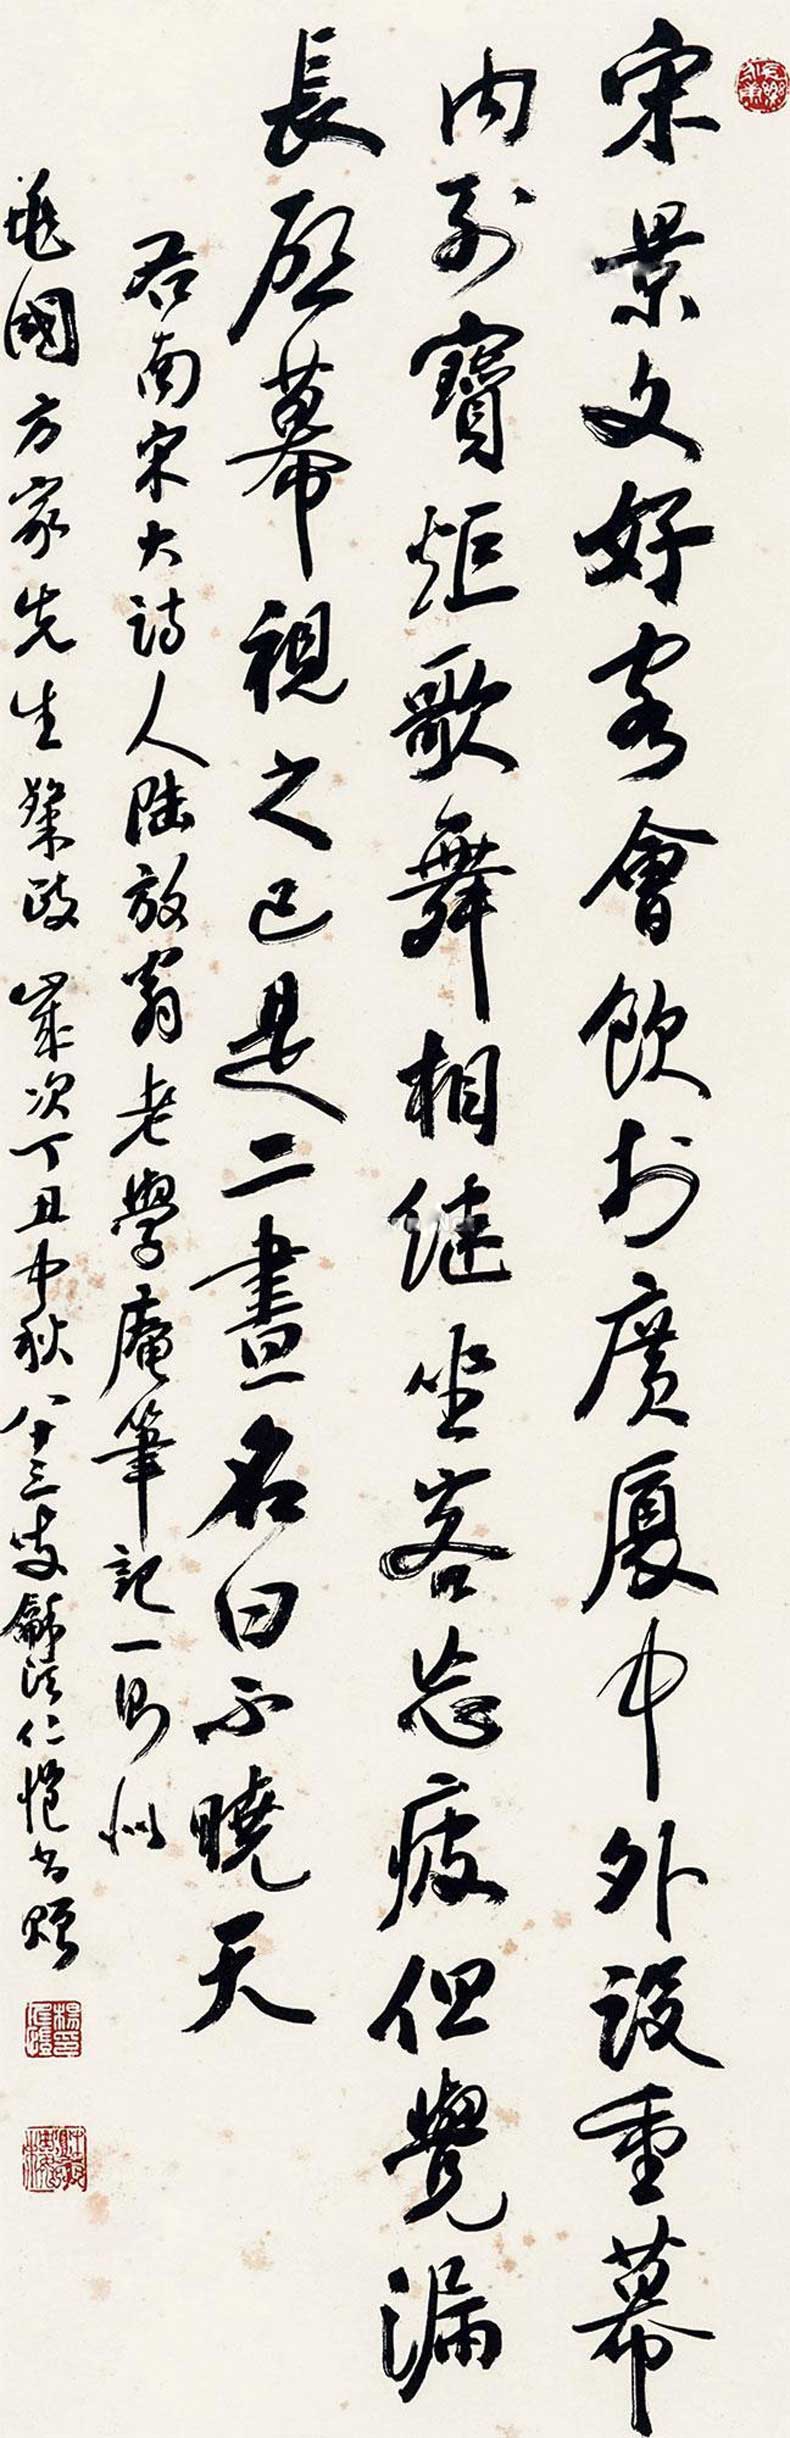 宋景文好客會飲於廣廈中外設重幕
内列寶炬歌舞相繼坐客忘疲但覺漏
長啟幕視之已是二晝名曰不曉天
右南宋大詩人陸放翁老學庵筆記一則似
兆國方家先生粲政 歲次丁丑中秋八十三叟龢溪仁愷書贈
楊仁愷印